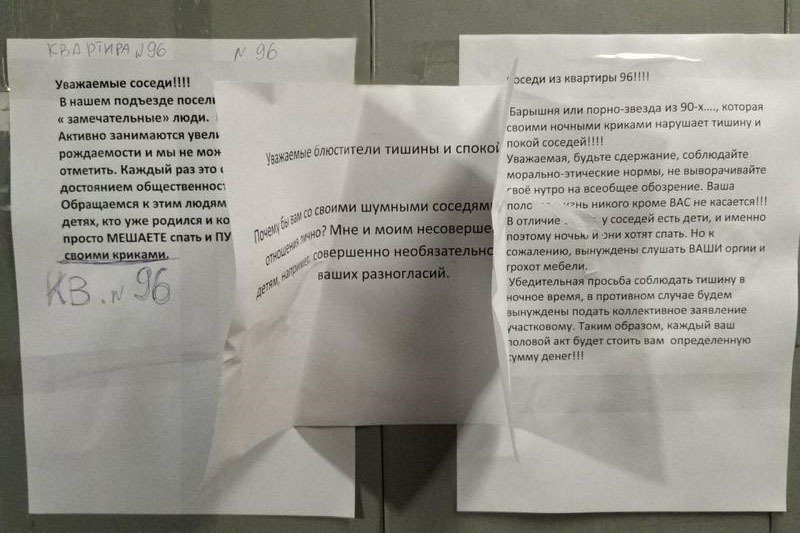 КВАРТИРА №96 №96
Уважаемые соседи!!!!
В нашем подъезде
« замечательные» люди.
Активно занимаются
рождаемости и мы не
отметить. Каждый раз это
достоянием
Обращаемся к этим
детях, кто уже родился и
просто МЕШАЕТЕ спать и
своими криками.
КВ. №96
Уважаемые блюстители тишины и
Почему бы вам со своими шумными
отношения лично? Мне и моим
детям, например, совершенно
ваших разногласий.
из квартиры 96!!!!
Барышня или порно-звезда из 90-х...., которая
своими ночными криками нарушает тишину и
покой соседей!!!!
Уважаемая, будьте сдержание, соблюдайте
морально-этические нормы, не выворачивайте
своё нутро на всеобщее обозрение. Ваша
никого кроме ВАС не касается!!!
В отличие у соседей есть дети, и именно
поэтому ночью и они хотят спать. Но к
сожалению, вынуждены слушать ВАШИ оргии и
грохот мебели.
Убедительная просьба соблюдать тишину в
ночное время, в противном случае будем
вынуждены подать коллективное заявление
участковому. Таким образом, каждый ваш
половой акт будет стоить вам определенную
сумму денег!!!